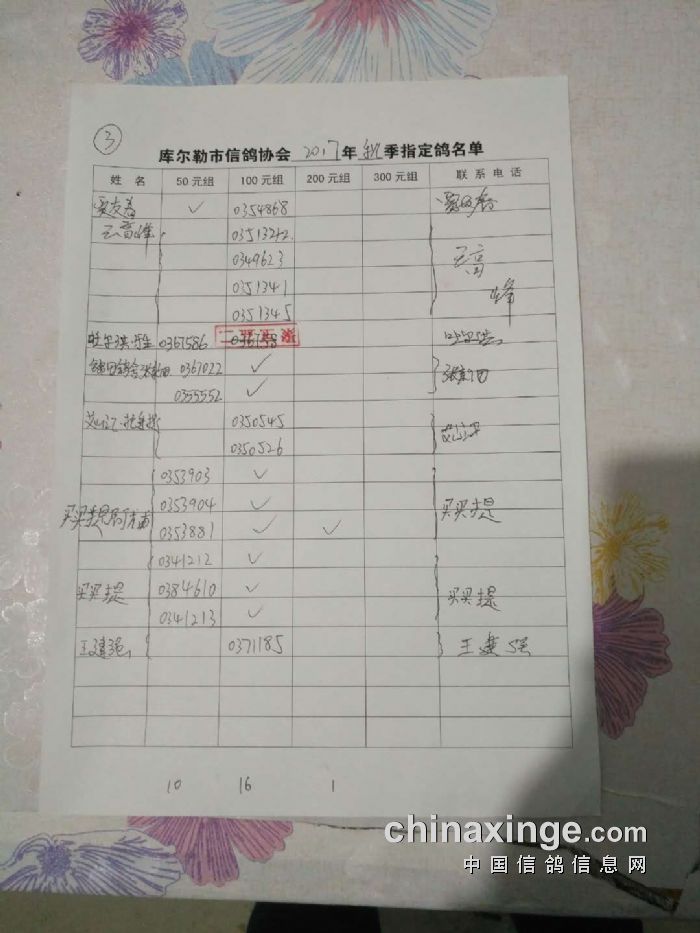 ③
库尔勒市信鸽协会 2017年 秋季指定鸽名单
姓 名 50元组 100元组 200元组 300元组 联系电话
✓ 0354868
王高峰 0351322
0349623 王高峰
0351341
0351345
0367586
0367022 ✓
0355552 ✓
0350545
0350526
0353903 ✓
0353904 ✓ 买买提
买买提 0353881 ✓ ✓
0341212 ✓
买买提 0384610 ✓ 买买提
0341213 ✓
王建强 0371185 王建强
10 16 1
chinaxinge.com
中国信鸽信息网